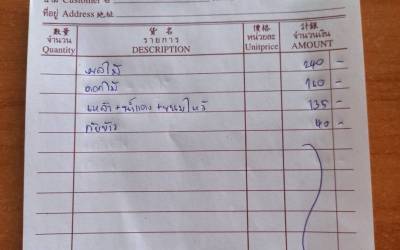 ที่อยู่ Address 地址
數量 貨名 價格 計銀
จำนวน รายการ หน่วยละ จำนวนเงิน
Quantity DESCRIPTION Unitprice AMOUNT
ผลไม้ 240 -
ดอกไม้ 120 -
เหล้า + น้ำแดง + ขนมไหว้ 135 -
กับข้าว 40 -